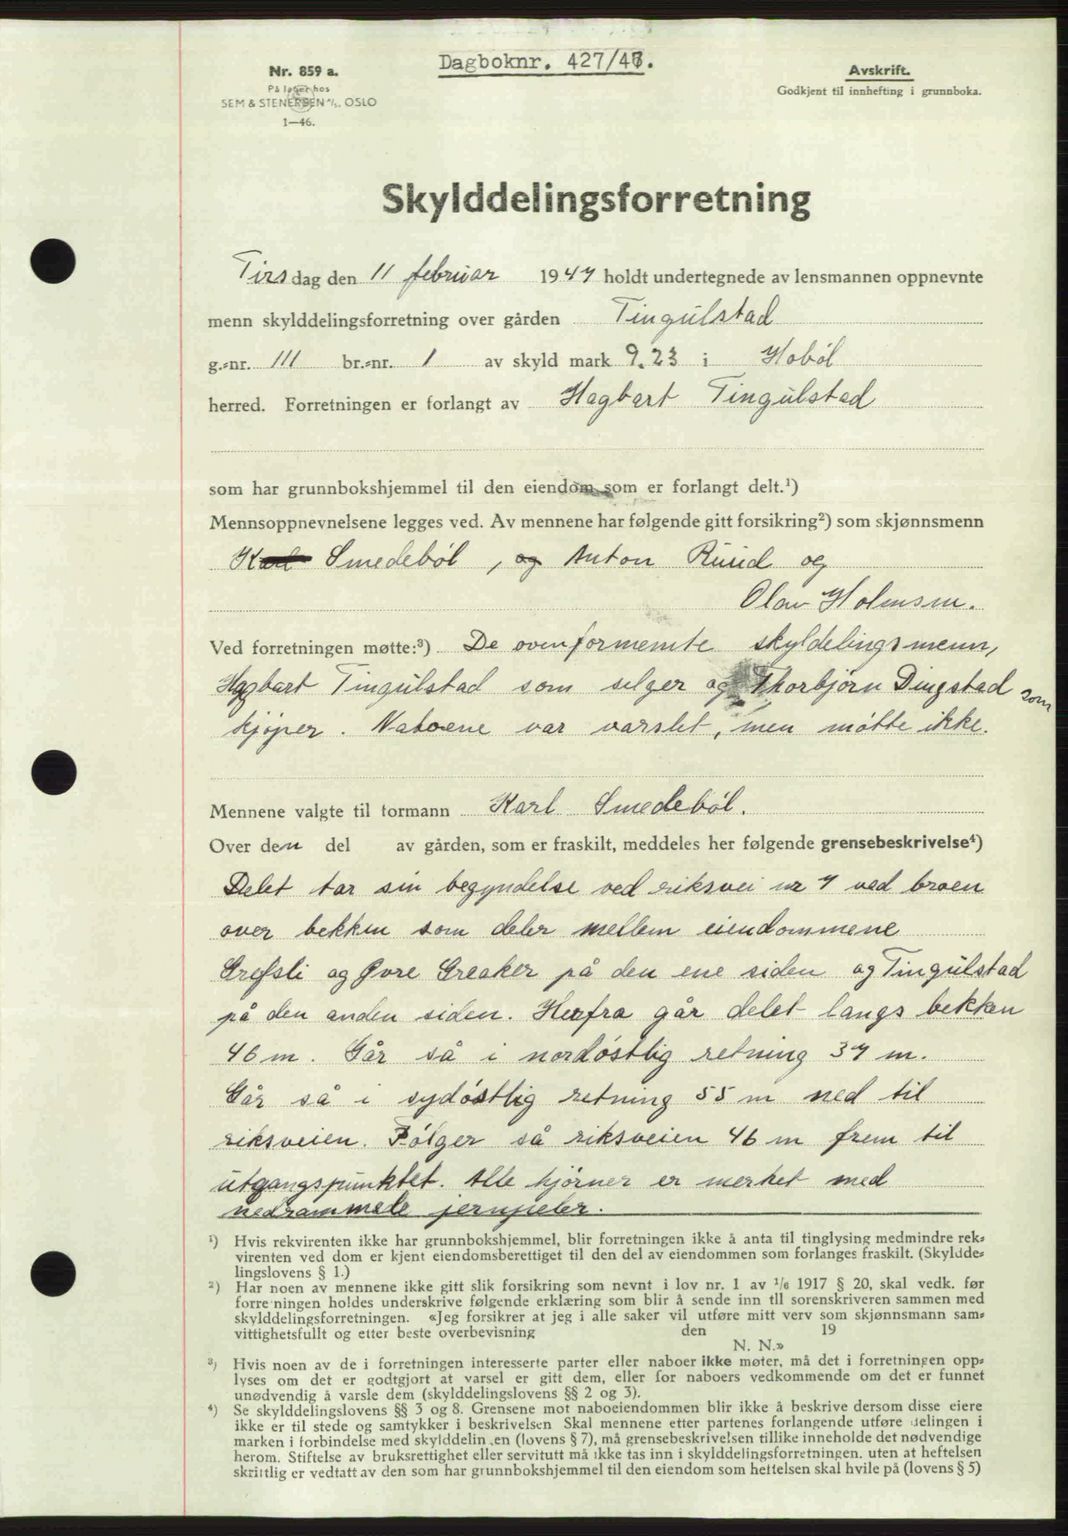 Dagboknr. 427/47.
Nr. 859 a.
På lager hos
SEM & STENERSEN A/S, OSLO
1—46.
Avskrift.
Godkjent til innhefting i grunnboka.
Skylddelingsforretning
Tirsdag den 11 februar 1947 holdt undertegnede av lensmannen oppnevnte
menn skylddelingsforretning over gården Tingulstad
g.-nr. 111 br.-nr. 1 av skyld mark 9.23 i Hobøl
herred. Forretningen er forlangt av Hagbart Tingulstad
som har grunnbokshjemmel til den eiendom som er forlangt delt.¹)
Mennsoppnevnelsene legges ved. Av mennene har følgende gitt forsikring²) som skjønnsmenn
Karl Smedebøl, og Anton Ruud og
Olav Holmsen.
Ved forretningen møtte:³) De ovenfornemte skyldelingsmenn,
Hagbart Tingulstad som selger og Thorbjørn Dingstad som
kjøper. Naboene var varslet, men møtte ikke.
Mennene valgte til formann Karl Smedebøl.
Over den del av gården, som er fraskilt, meddeles her følgende grensebeskrivelse⁴)
Delet tar sin begyndelse ved riksvei nr 7 ved broen
over bekken som deler mellem eiendommene
Grefsli og Øvre Greaker på den ene siden og Tingulstad
på den anden siden. Herfra går delet langs bekken
46 m. Går så i nordøstlig retning 37 m.
Går så i sydøstlig retning 55 m ned til
riksveien. Følger så riksveien 46 m frem til
utgangspunktet. Alle hjørner er merket med
nedrammede jernpeler.
¹) Hvis rekvirenten ikke har grunnbokshjemmel, blir forretningen ikke å anta til tinglysing medmindre rek-
virenten ved dom er kjent eiendomsberettiget til den del av eiendommen som forlanges fraskilt. (Skyldde-
lingslovens § 1.)
²) Har noen av mennene ikke gitt slik forsikring som nevnt i lov nr. 1 av 1/6 1917 § 20, skal vedk. før
forretningen holdes underskrive følgende erklæring som blir å sende inn til sorenskriveren sammen med
skylddelingsforretningen. «Jeg forsikrer at jeg i alle saker vil utføre mitt verv som skjønnsmann sam-
vittighetsfullt og etter beste overbevisning den 19
N. N.»
³) Hvis noen av de i forretningen interesserte parter eller naboer ikke møter, må det i forretningen opp-
lyses om det er godtgjort at varsel er gitt dem, eller for naboers vedkommende om det er funnet
unødvendig å varsle dem (skylddelingslovens §§ 2 og 3).
⁴) Se skylddelingslovens §§ 3 og 8. Grensene mot naboeiendommen blir ikke å beskrive dersom disse eiere
ikke er til stede og samtykker i beskrivelsen Skal mennene etter partenes forlangende utføre delingen i
marken i forbindelse med skylddelingen (lovens § 7), må grensebeskrivelsen tillike inneholde det nødvendige
herom. Stiftelse av bruksrettighet eller servitutt må ikke tas inn i skylddelingsforretningen, uten at heftelsen
skriftlig er vedtatt av den som har grunnbokshjemmel til den eiendom som heftelsen skal hvile på (lovens § 5)